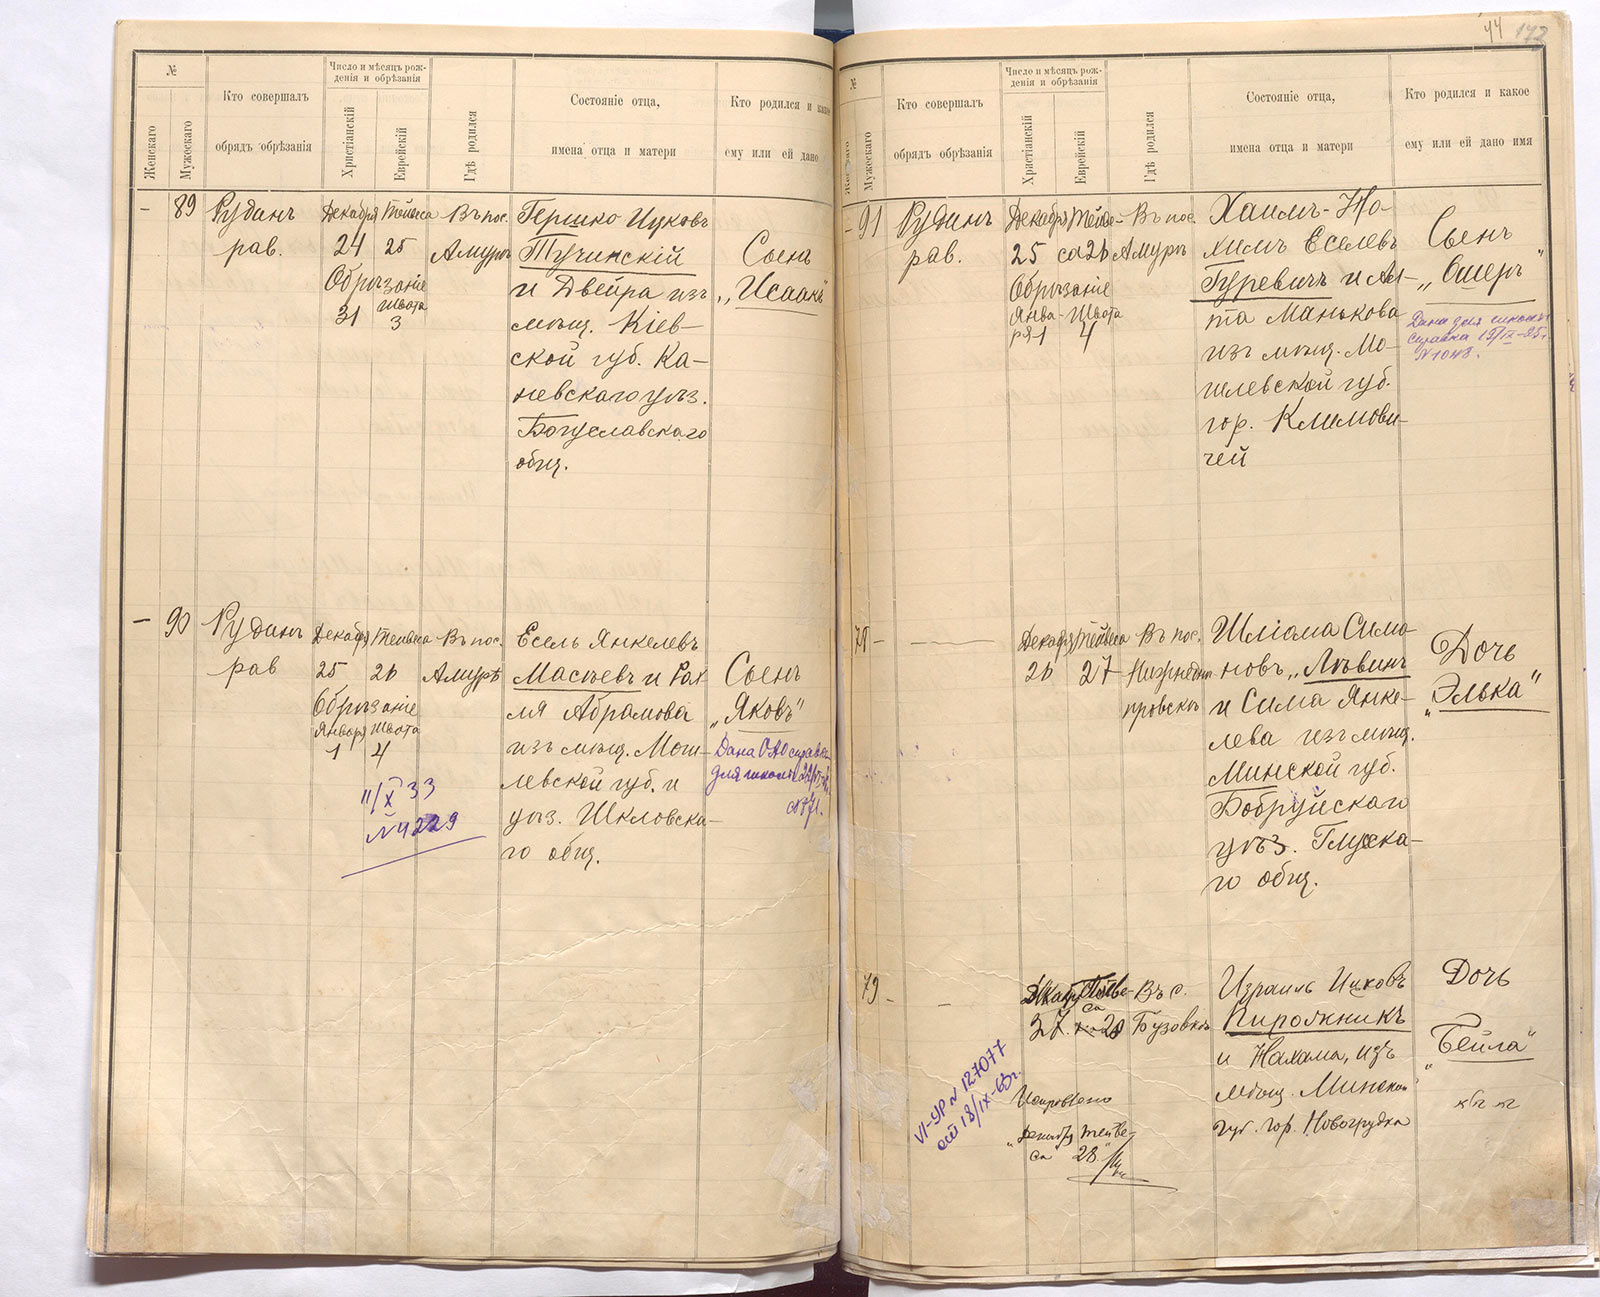 44 172
№
Женскаго
Мужескаго
Кто совершалъ
обрядъ обрѣзанія
Число и мѣсяцъ рож-
денія и обрѣзанія
Христіанскій
Еврейскій
Гдѣ родился
Состояніе отца,
имена отца и матери
Кто родился и какое
ему или ей дано
89
Рудинъ
рав.
Декабря
24
Тейвеса
25
Обрѣзаніе
31
Швота
3
Въ пос.
Амуръ
Гершко Ицковъ
Тучинскій
и Двейра изъ
мѣщ. Кіев-
ской губ. Ка-
невскаго уѣз.
Богуславскаго
общ.
Сынъ
„Исаакъ
90
Рудинъ
рав
Декабря
25
Тейвеса
26
Обрѣзаніе
Января
1
Швота
4
11/X 33
№ 4229
Въ пос.
Амурѣ
Есель Янкелевъ
Масѣевъ и Рах
ля Абрамова
изъ мѣщ. Моги-
левской губ. и
уѣз. Шкловска-
го общ.
Сынъ
„Яковъ"
Дана
для школы
№
Мужескаго
Кто совершалъ
обрядъ обрѣзанія
Число и мѣсяцъ рож-
денія и обрѣзанія
Христіанскій
Еврейскій
Гдѣ родился
Состояніе отца,
имена отца и матери
Кто родился и какое
ему или ей дано имя
91
Рудинъ
рав.
Декабря
25
Тейве-
са 26
Обрѣзаніе
Янва-
ря 1
Швота
4
Въ пос.
Амуръ
Хаимъ-Но-
химъ Еселевъ
Гуревичъ и
Манькова
изъ мѣщ. Мо-
гилевской губ.
гор. Климови-
чей
Сынъ
„Ошеръ"
Дана для школы
справка 15/IX-25г.
№ 1048.
78
Декабря
26
Тейвеса
27
Въ пос.
Нижнедне-
провскъ
Шліома Симо-
новъ „Лѣвинъ
и Сима Янке-
лева изъ мѣщ.
Минской губ.
Бобруйскаго
уѣз. Глусска-
го общ.
Дочь
„Элька"
79
Въ с.
Бузовкѣ
Израиль Ицковъ
Пирожникъ
и Нахама, изъ
мѣщ. Минской
губ. гор. Новогрудка
Дочь
„Бейла"
VI-УР № 127077
от 18/IX-63г.
Исправлено
„Декабря Тейве-
са 28."